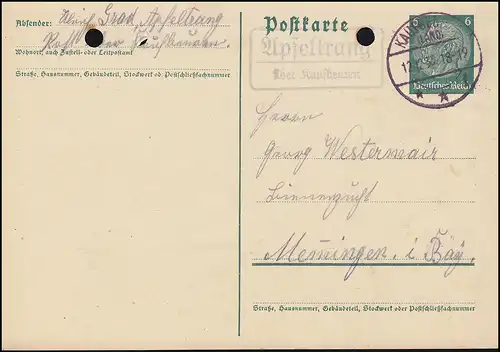 Absender: Ulrich Grad, Apfeltrang
Post über Kaufbeuren.
Wohnort, auch Zustell- oder Leitpostamt
Straße, Hausnummer, Gebäudeteil, Stockwerk od. Postschließfachnummer
Postkarte
Apfeltrang
über Kaufbeuren
KAUFBEUREN
LAND
6 6
Deutsches Reich
Herrn
Georg Westermair
Bienenzucht
Memmingen. i Bay.
Straße, Hausnummer, Gebäudeteil, Stockwerk oder Postschließfachnummer